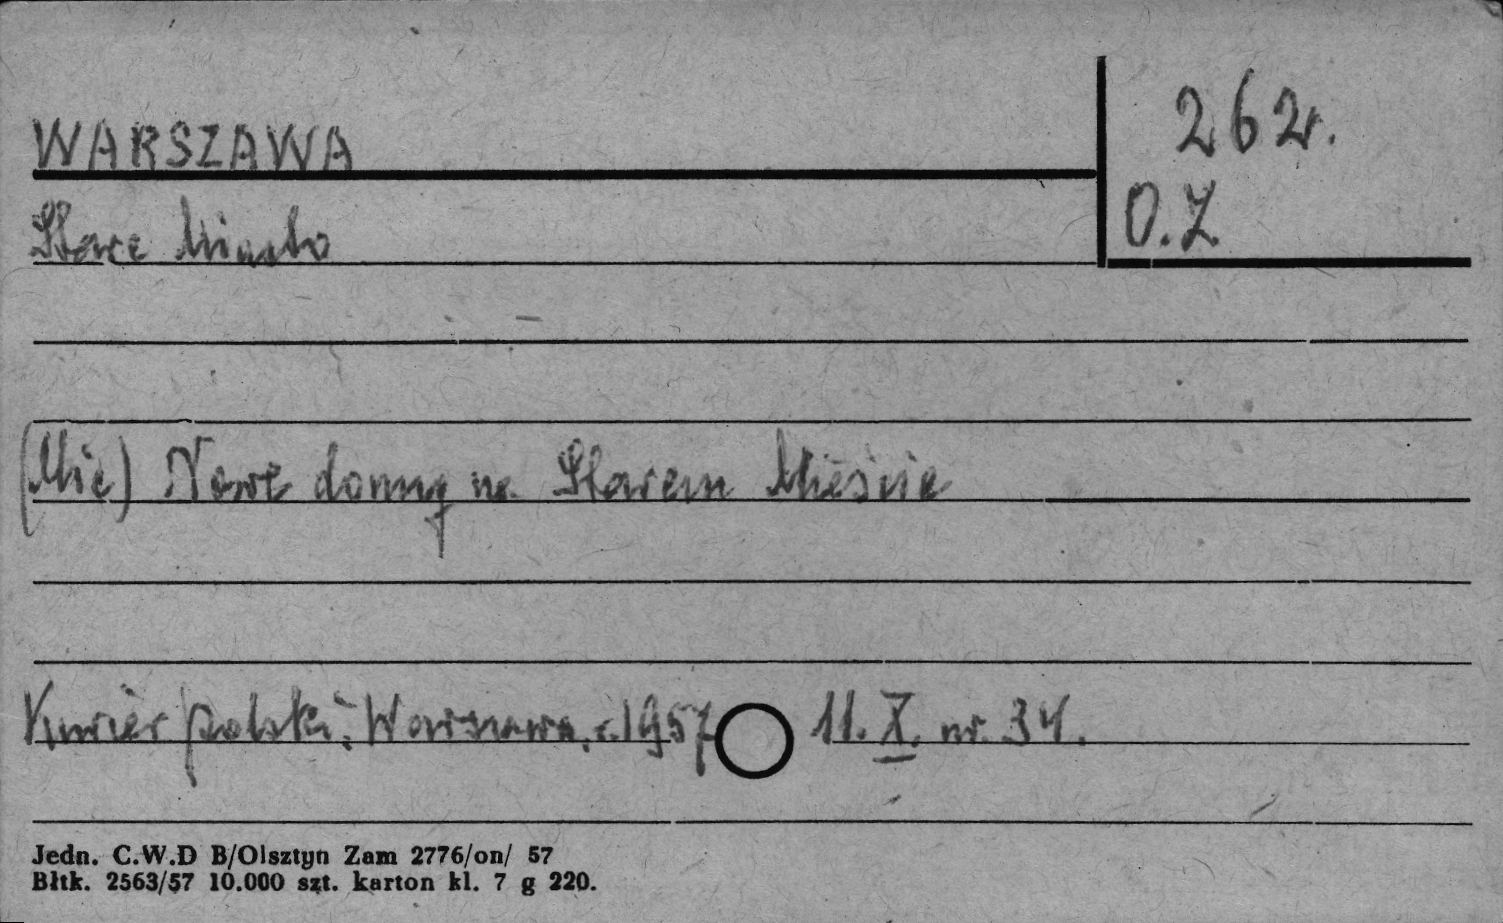 WARSZAWA
262r.
O.Z.
Stare Miasto
(Mie) Nowe domy na Starem Mieście
Kurier polski, Warszawa, r. 1957 11. X. nr. 34.
Jedn. C.W.D B/Olsztyn Zam 2776/on/ 57
Błtk. 2563/57 10.000 szt. karton kl. 7 g 220.